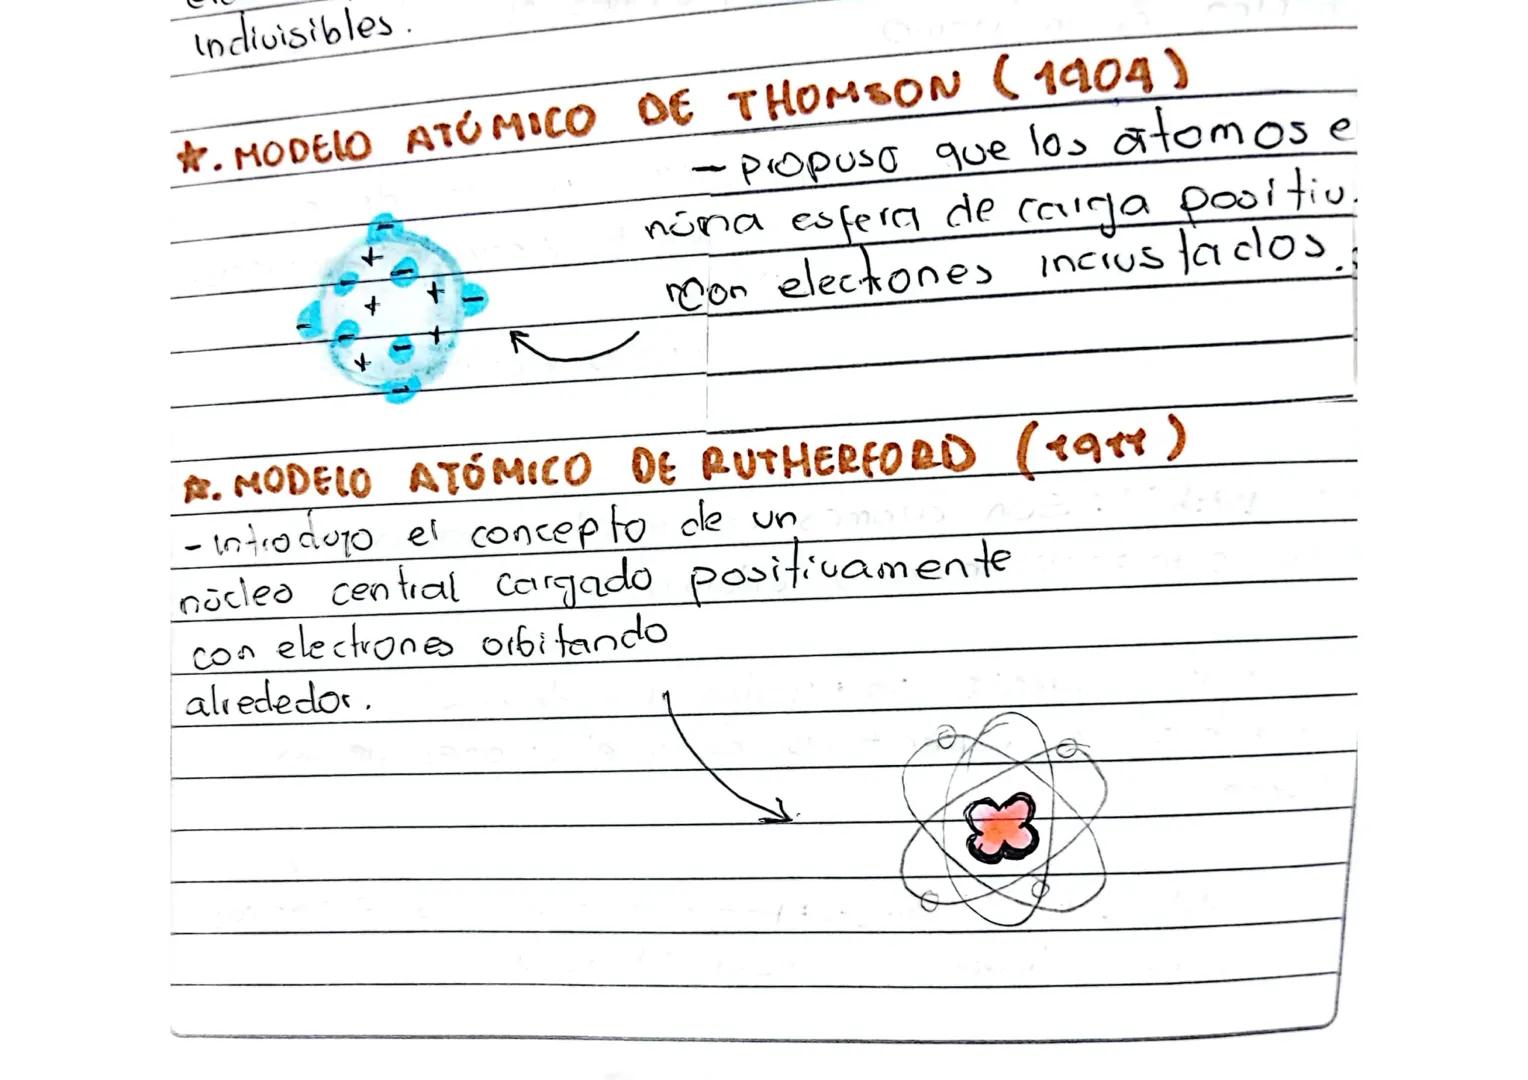 indivisibles.
☆. MODELO ATÓMICO DE THOMSON (1904)
- propuso que los átomos e
esfera de carga positiv
con electrones incrustados.
☆. MODELO ATÓMICO DE RUTHERFORD (1911)
- introdujo el concepto de un
núcleo central cargado positivamente
con electrones orbitando
alrededor.